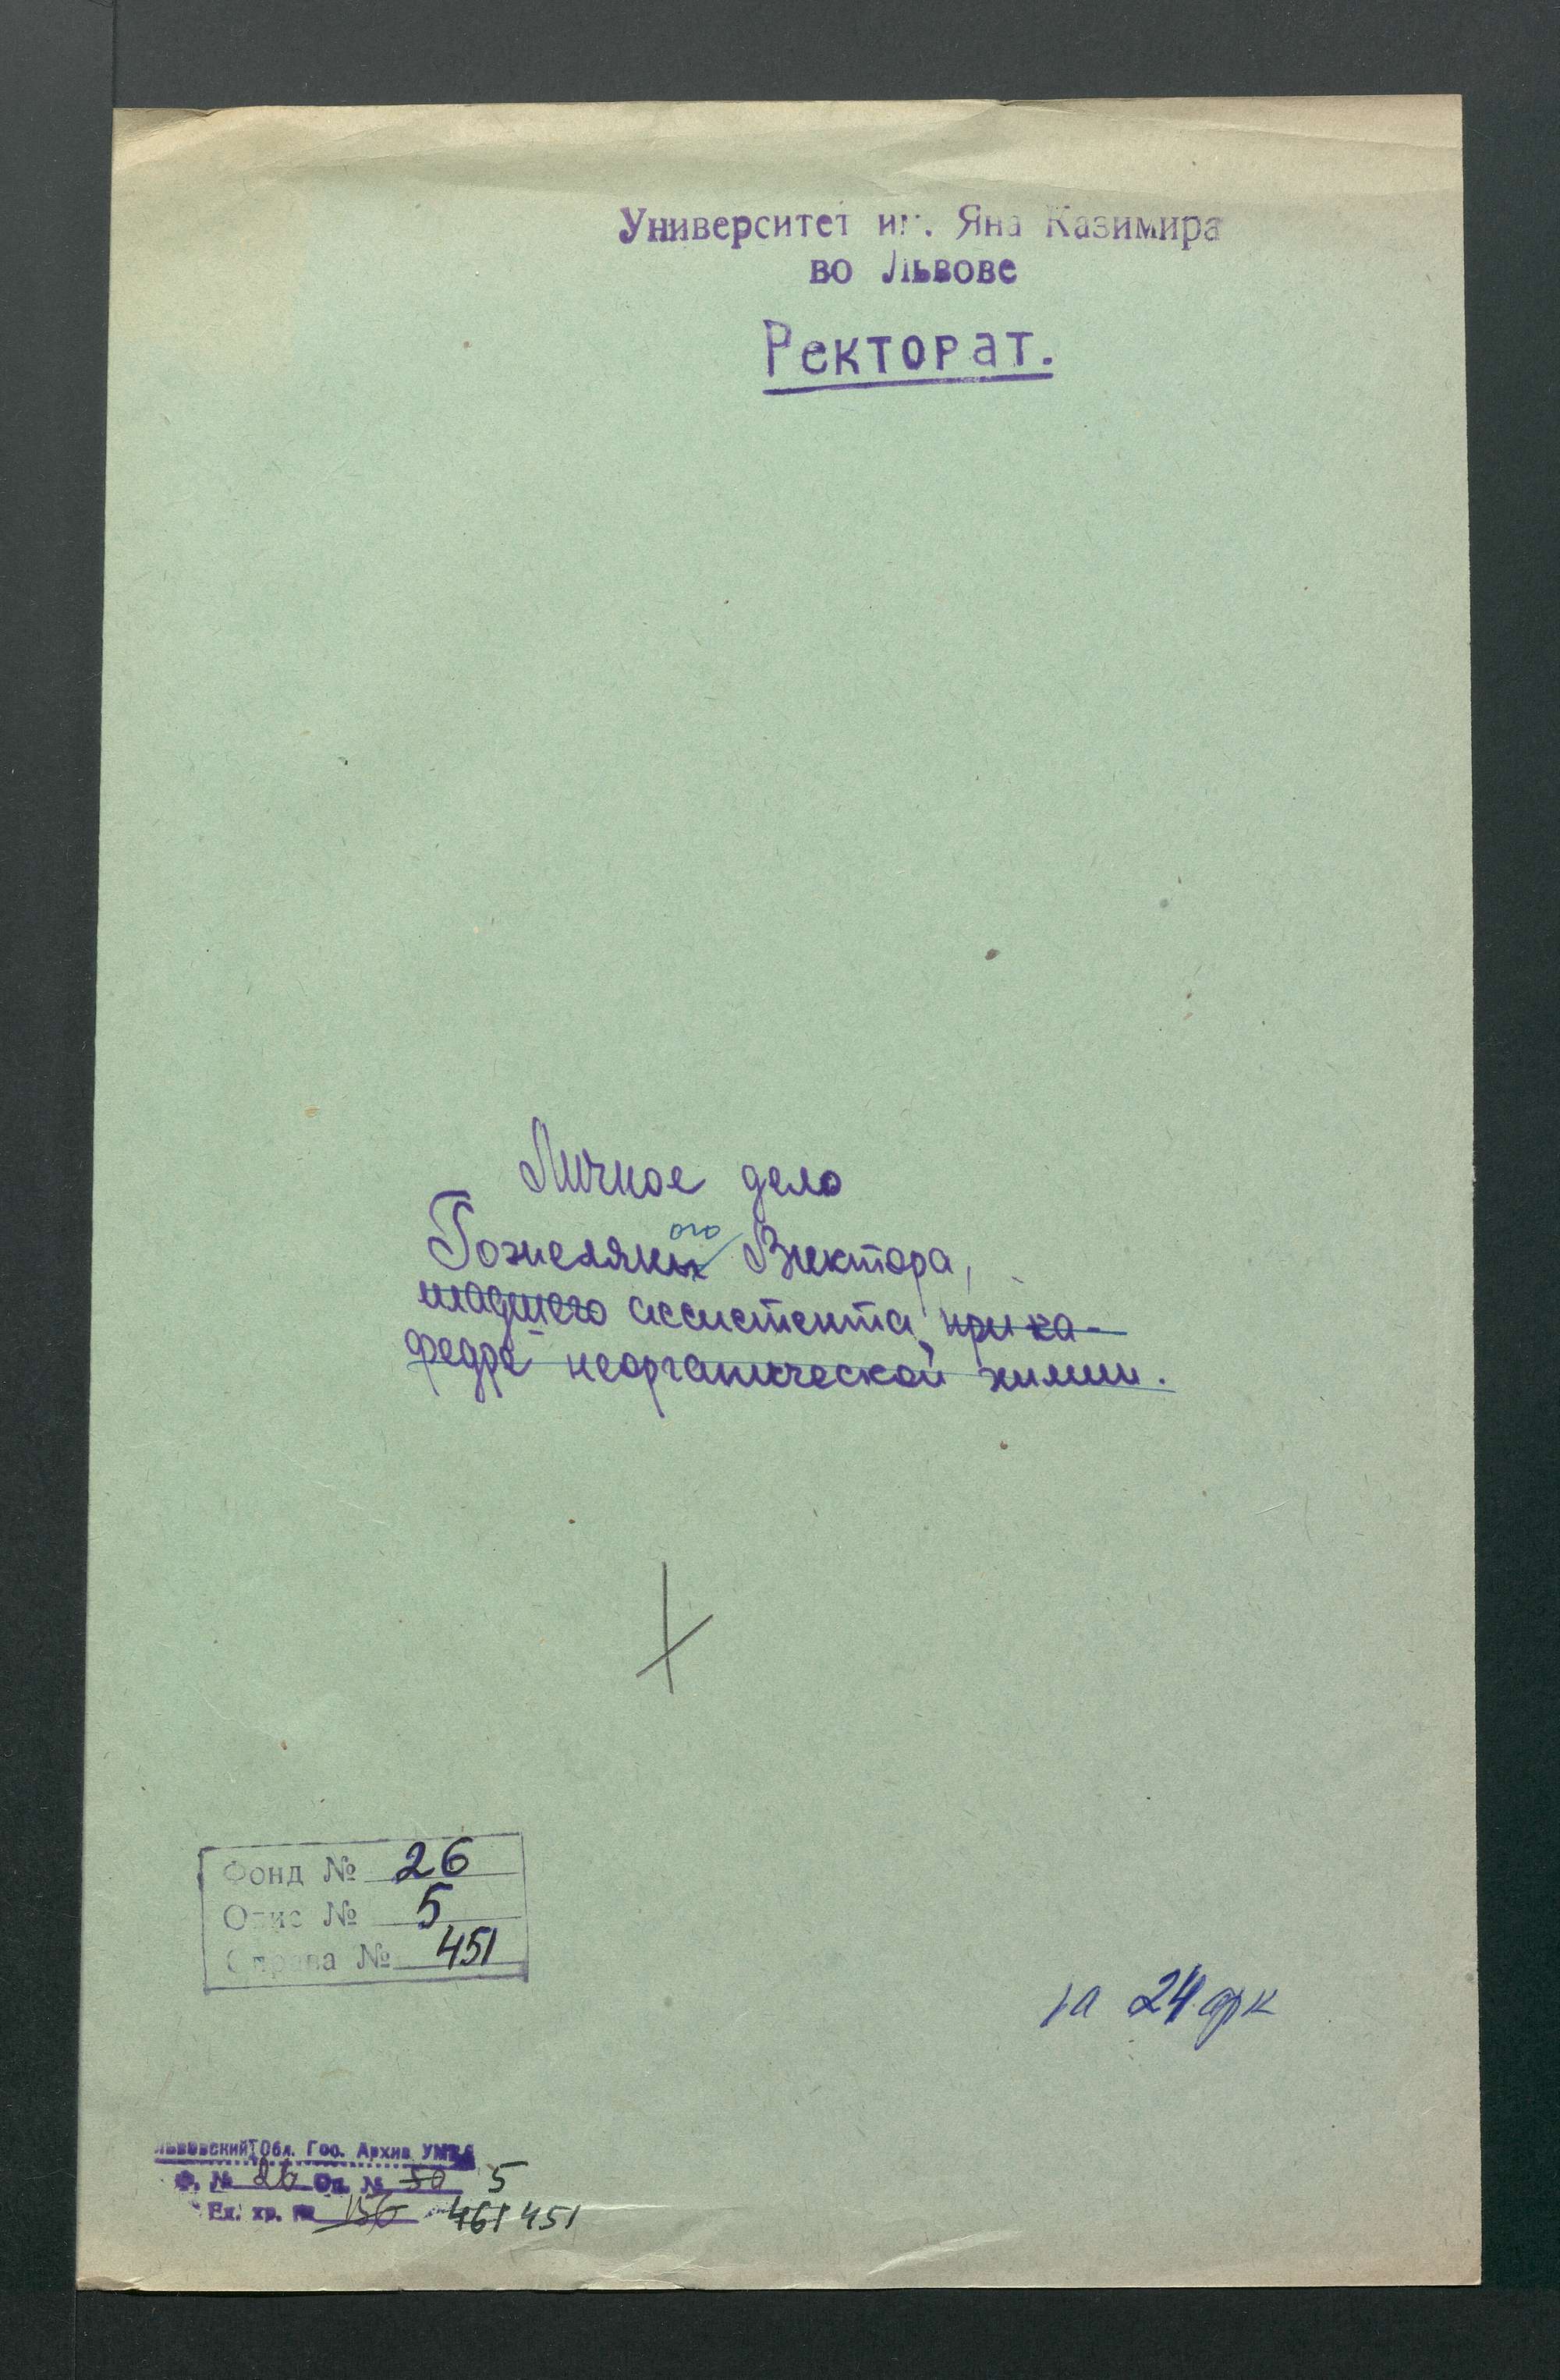 Университет им. Яна Казимира
во Львове
Ректорат.
Личное дело
ого
Гожеляных Виктора,
младшего ассистента при ка-
федре неорганической химии.
Фонд № 26
Опис № 5
Справа № 451
на 24 арк
Львовский Обл. Гос. Архив УМВД
Ф. № 26 Оп. № 50 5
Ед. хр. № 156 461 451